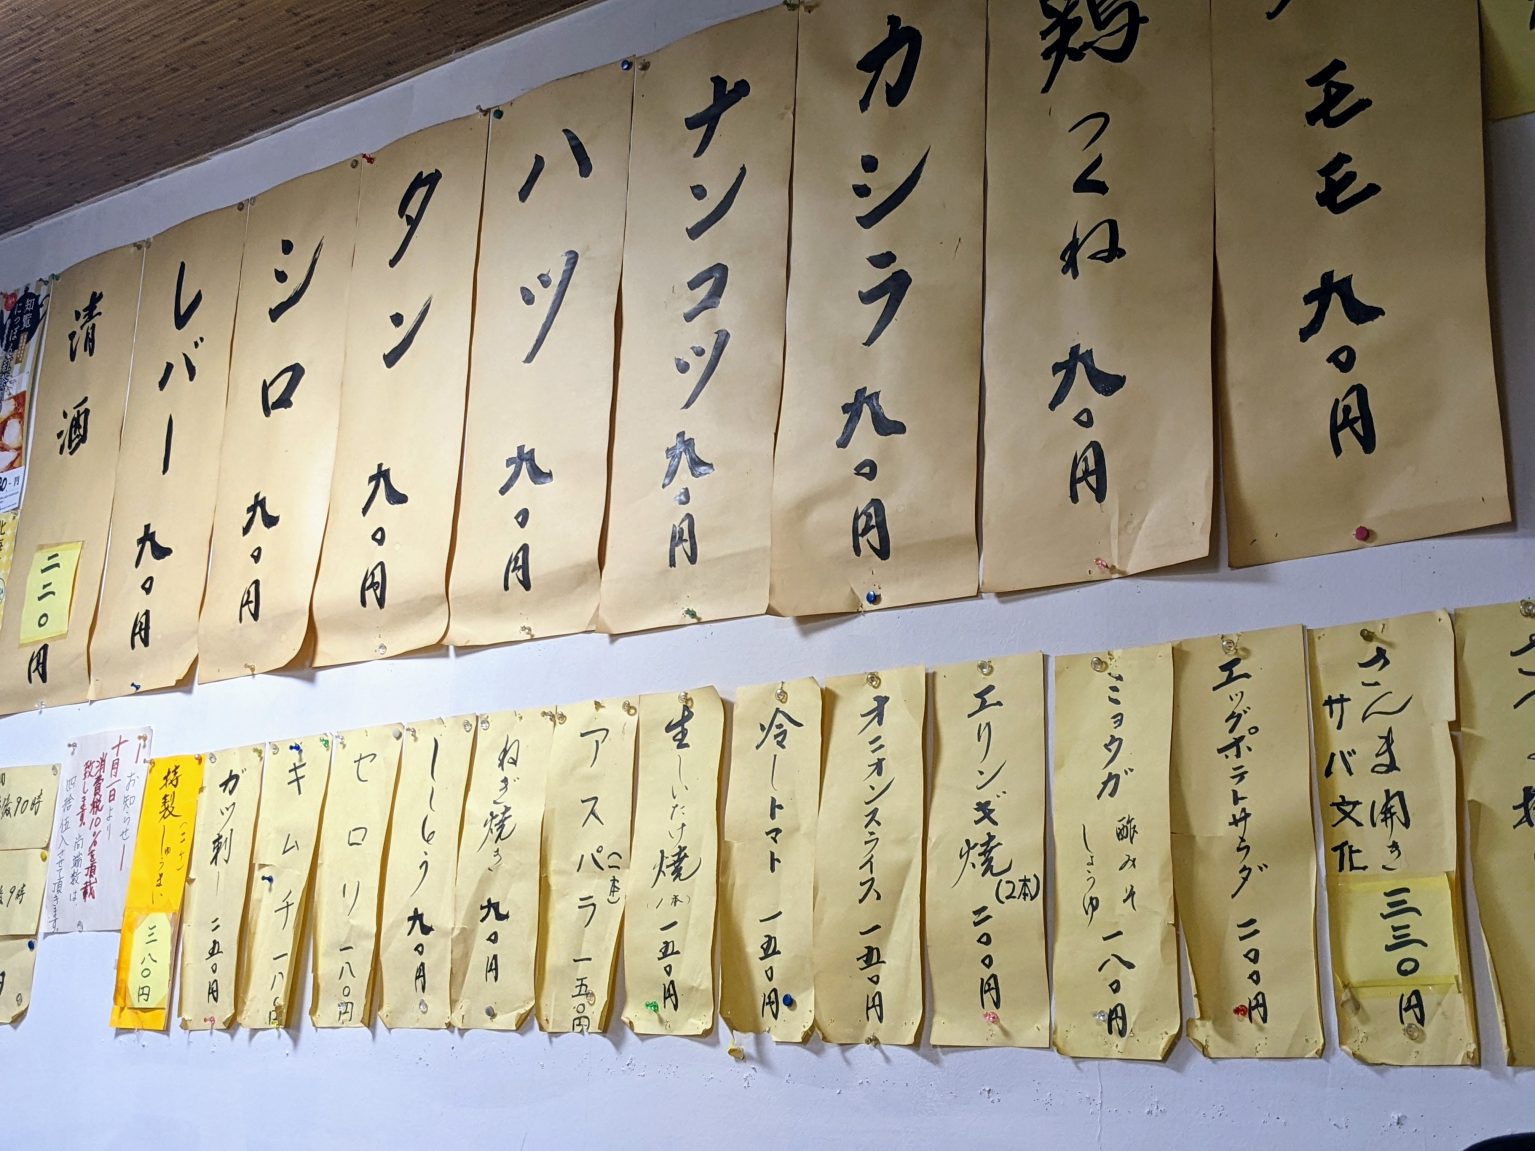 モモ 九〇円
鶏つくね 九〇円
カシラ 九〇円
ナンコツ 九〇円
ハツ 九〇円
タン 九〇円
シロ 九〇円
レバー 九〇円
清酒 二二〇円
さんま開き
サバ文化
三三〇円
エッグポテトサラダ 二〇〇円
ミョウガ 酢みそ
しょうゆ
一八〇円
エリンギ焼(2本) 二〇〇円
オニオンスライス 一五〇円
冷しトマト 一五〇円
生しいたけ焼(1本) 一五〇円
アスパラ(一本) 一五〇円
ねぎ焼き 九〇円
ししとう 九〇円
セロリ 一八〇円
キムチ 一八〇円
ガツ刺し 二五〇円
特製しゅうまい(二ケ) 三八〇円
お知らせ
十月一日より
消費税10%を頂戴
致します 尚端数は
四捨伍入させて頂きます